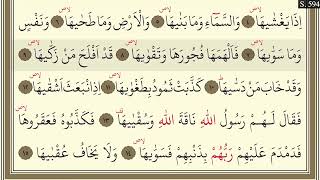 S. 594
اِذَا يَغْشٰيهَاۙ ﴿٤﴾ وَالسَّمَٓاءِ وَمَا بَنٰيهَاۙ ﴿٥﴾ وَالْاَرْضِ وَمَا طَحٰيهَاۙ ﴿٦﴾ وَنَفْسٍ
وَمَا سَوّٰيهَاۙ ﴿٧﴾ فَاَلْهَمَهَا فُجُورَهَا وَتَقْوٰيهَاۙ ﴿٨﴾ قَدْ اَفْلَحَ مَنْ زَكّٰيهَاۙ ﴿٩﴾
وَقَدْ خَابَ مَنْ دَسّٰيهَاۜ ﴿١٠﴾ كَذَّبَتْ ثَمُودُ بِطَغْوٰيهَاۙ ﴿١١﴾ اِذِ انْبَعَثَ اَشْقٰيهَاۙ ﴿١٢﴾
فَقَالَ لَهُمْ رَسُولُ اللّٰهِ نَاقَةَ اللّٰهِ وَسُقْيٰيهَاۜ ﴿١٣﴾ فَكَذَّبُوهُ فَعَقَرُوهَاۙ
فَدَمْدَمَ عَلَيْهِمْ رَبُّهُمْ بِذَنْبِهِمْ فَسَوّٰيهَاۙ ﴿١٤﴾ وَلَا يَخَافُ عُقْبٰيهَا ﴿١٥﴾